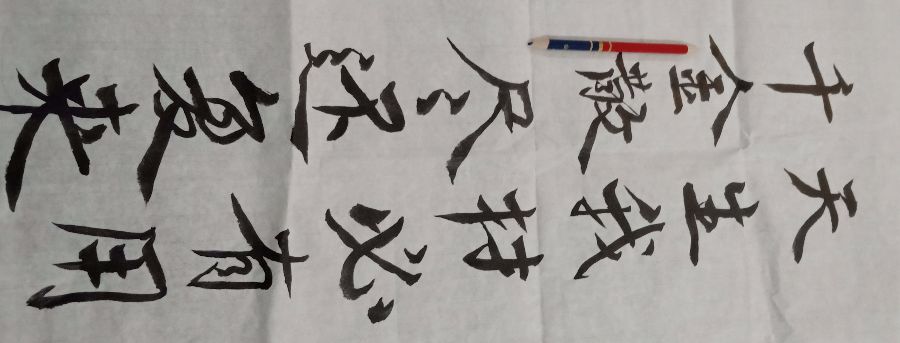 天生我材必有用
千金散尽还复来